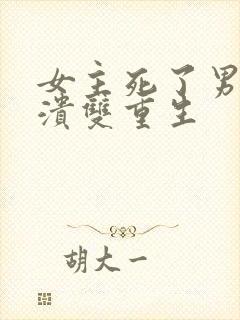 女主死了男
溃双重生
胡大一